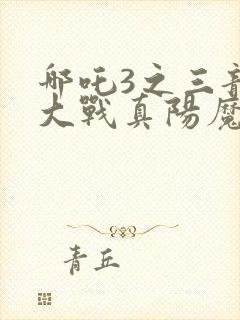 哪吒3之三
大戰真陽魔
青丘